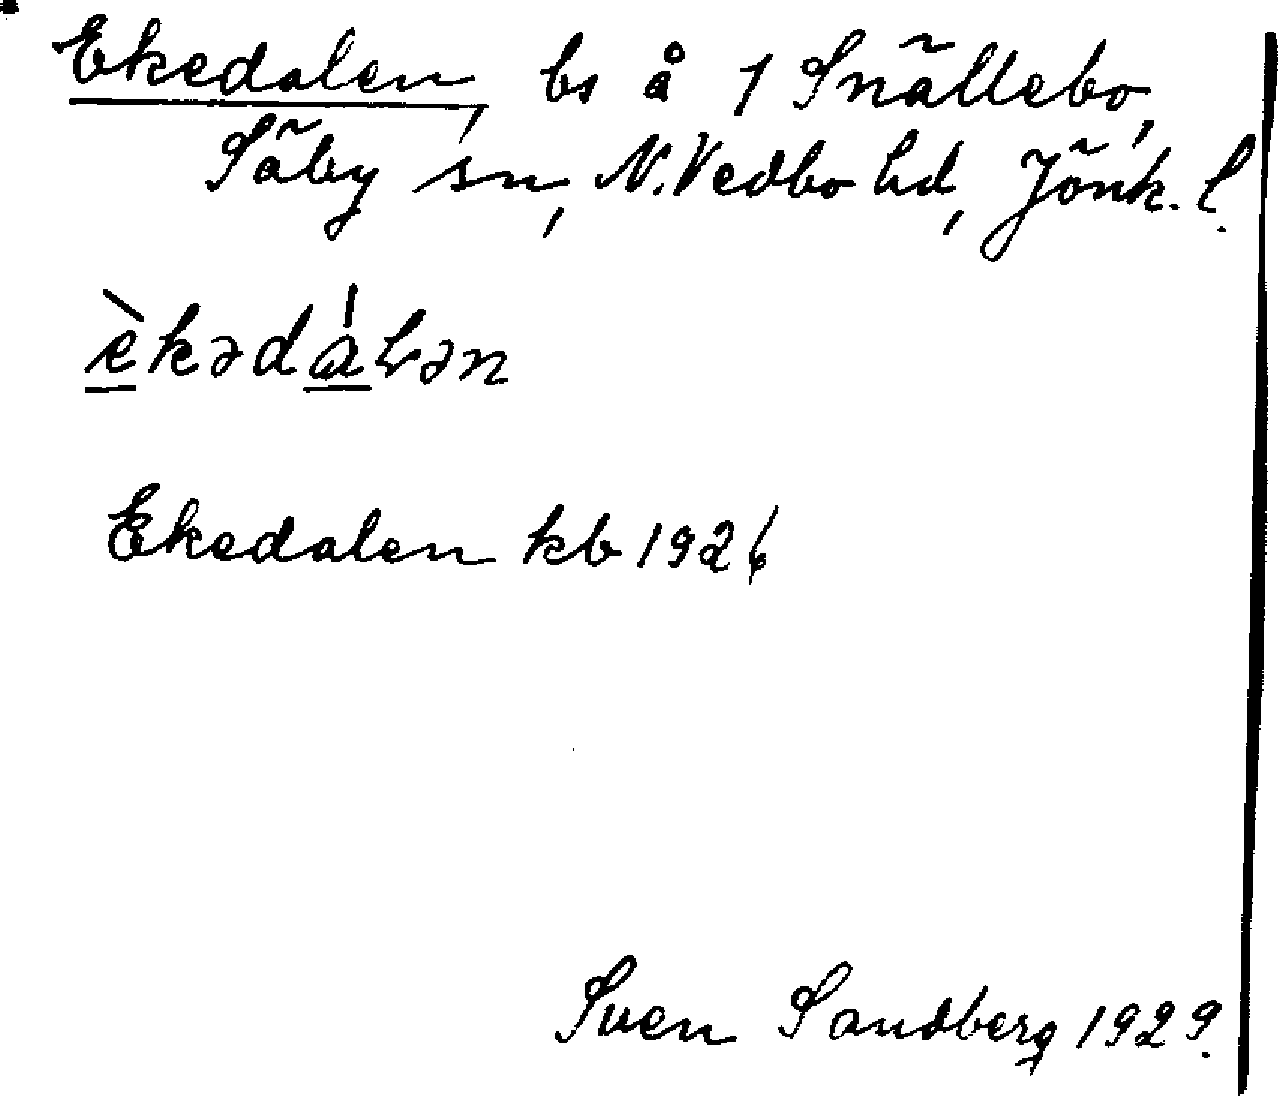 Ekedalen, bs å 1 Snällebo,
Säby sn, N. Vedbo hd, Jönk. l.
èkədáLən
Ekedalen kb 1926
Sven Sandberg 1929.